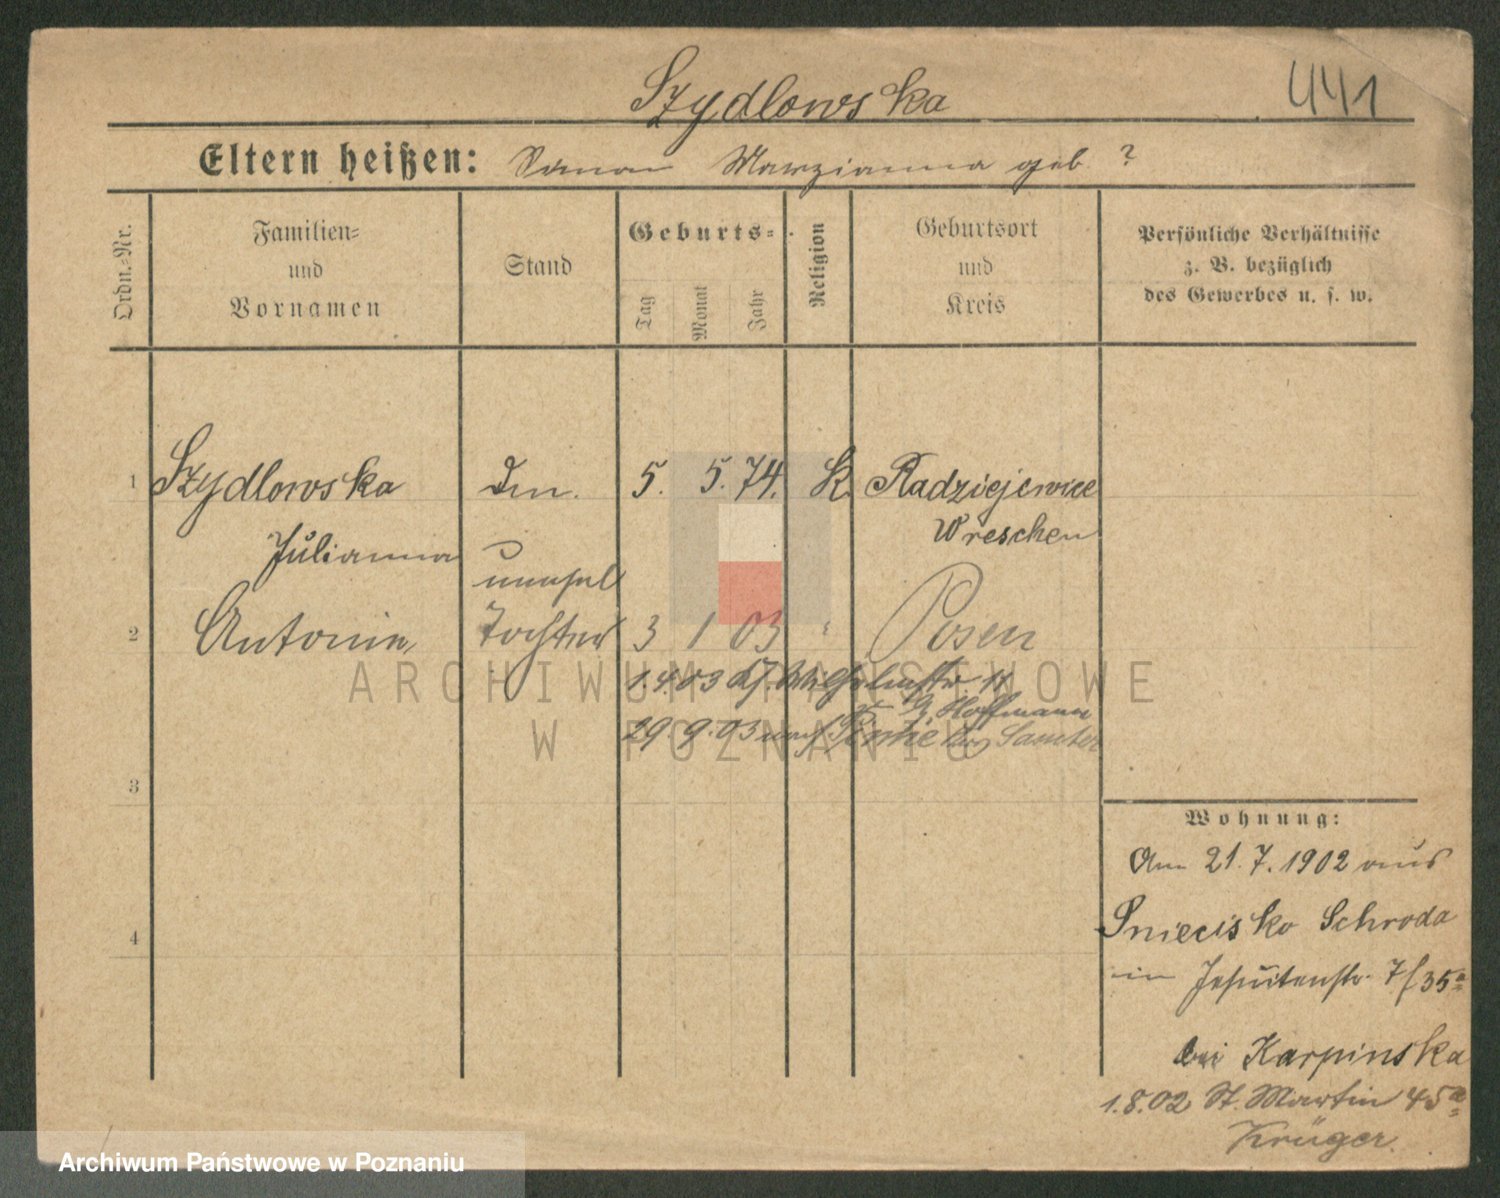 Szydlowska
441
Eltern heißen: Marzianna geb ?
Ordn.-Nr.
Familien-
und
Vornamen
Stand
Geburts-
Tag
Monat
Jahr
Religion
Geburtsort
und
Kreis
Persönliche Verhältnisse
z. B. bezüglich
des Gewerbes u. s. w.
1 Szydlowska 5. 5. 74. K. Radziejewice
Wreschen
Julianna
2 Antonie Tochter 3 1 03 Posen
1.4.03 Wilhelmstr. 11
Hoffmann
29 9. 03 nach Samter
3
Wohnung:
Am 21.7.1902 aus
Sniecisko Schroda
4
in Jesuitenstr. 7/35a
bei Karpinska
1.8.02 St. Martin 45a
Krüger.
ARCHIWUM PAŃSTWOWE
W POZNANIU
Archiwum Państwowe w Poznaniu